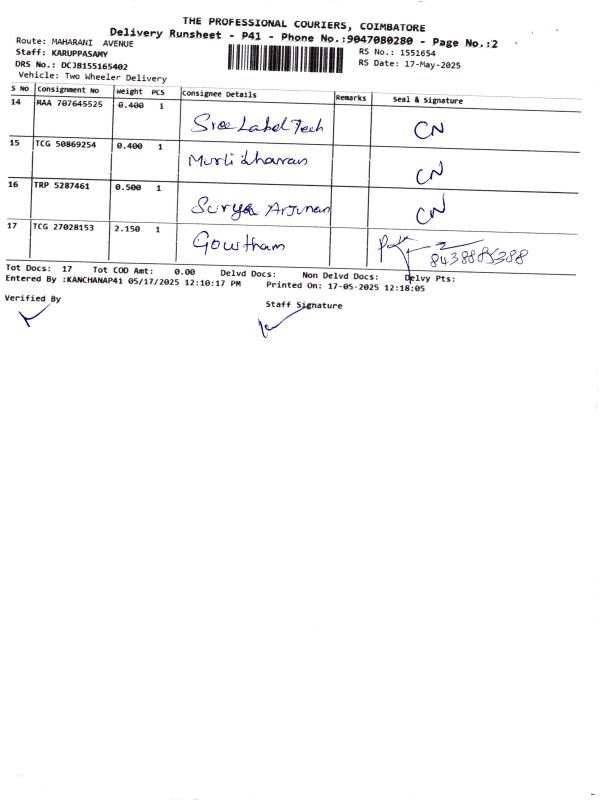 THE PROFESSIONAL COURIERS, COIMBATORE
Delivery Runsheet - P41 - Phone No.:9047080280 - Page No.:2
Route: MAHARANI AVENUE
RS No.: 1551654
Staff: KARUPPASAMY
RS Date: 17-May-2025
DRS No.: DCJB155165402
Vehicle: Two Wheeler Delivery
S No Consignment No Weight PCS Consignee Details Remarks Seal & Signature
14 MAA 707645525 0.400 1
Sree Label Tech CN
15 TCG 50869254 0.400 1
Murli dharran CN
16 TRP 5287461 0.500 1
Surya Arjunan CN
17 TCG 27028153 2.150 1
Gowtham 8438885388
Tot Docs: 17 Tot COD Amt: 0.00 Delvd Docs: Non Delvd Docs: Delvy Pts:
Entered By :KANCHANAP41 05/17/2025 12:10:17 PM Printed On: 17-05-2025 12:18:05
Verified By Staff Signature